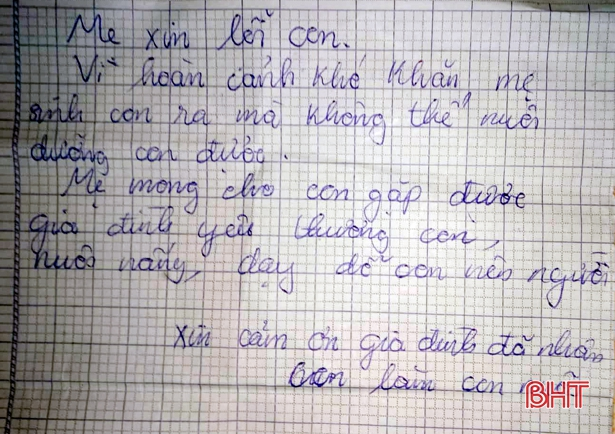 Mẹ xin lỗi con.
Vì hoàn cảnh khó khăn mẹ
sinh con ra mà không thể nuôi
dưỡng con được.
Mẹ mong cho con gặp được
gia đình yêu thương con,
nuôi nấng, dạy dỗ con nên người
Xin cảm ơn gia đình đã nhận
con làm con
BHT